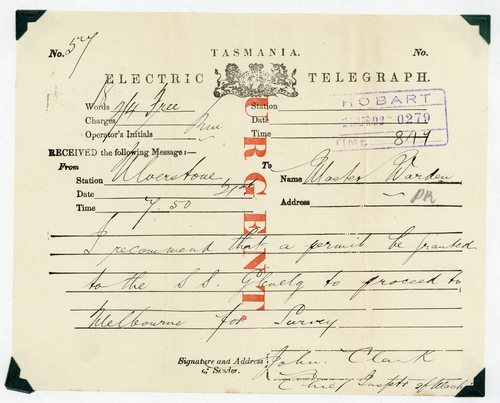 No. 57
TASMANIA.
No.
ELECTRIC TELEGRAPH.
Words 24 Free
Charges
Operator's Initials
Station
Date
Time
HOBART
0279
TIME 8/19
RECEIVED the following Message:—
From
Station Ulverstone
Date 21st
Time 7.50
To
Name Master Warden
Address
URGENT.
I recommend that a permit be granted
to the S.S. Glenelg to proceed to
Melbourne for Survey
Signature and Address of Sender.
John Clark
Chief Inspctr of Mach